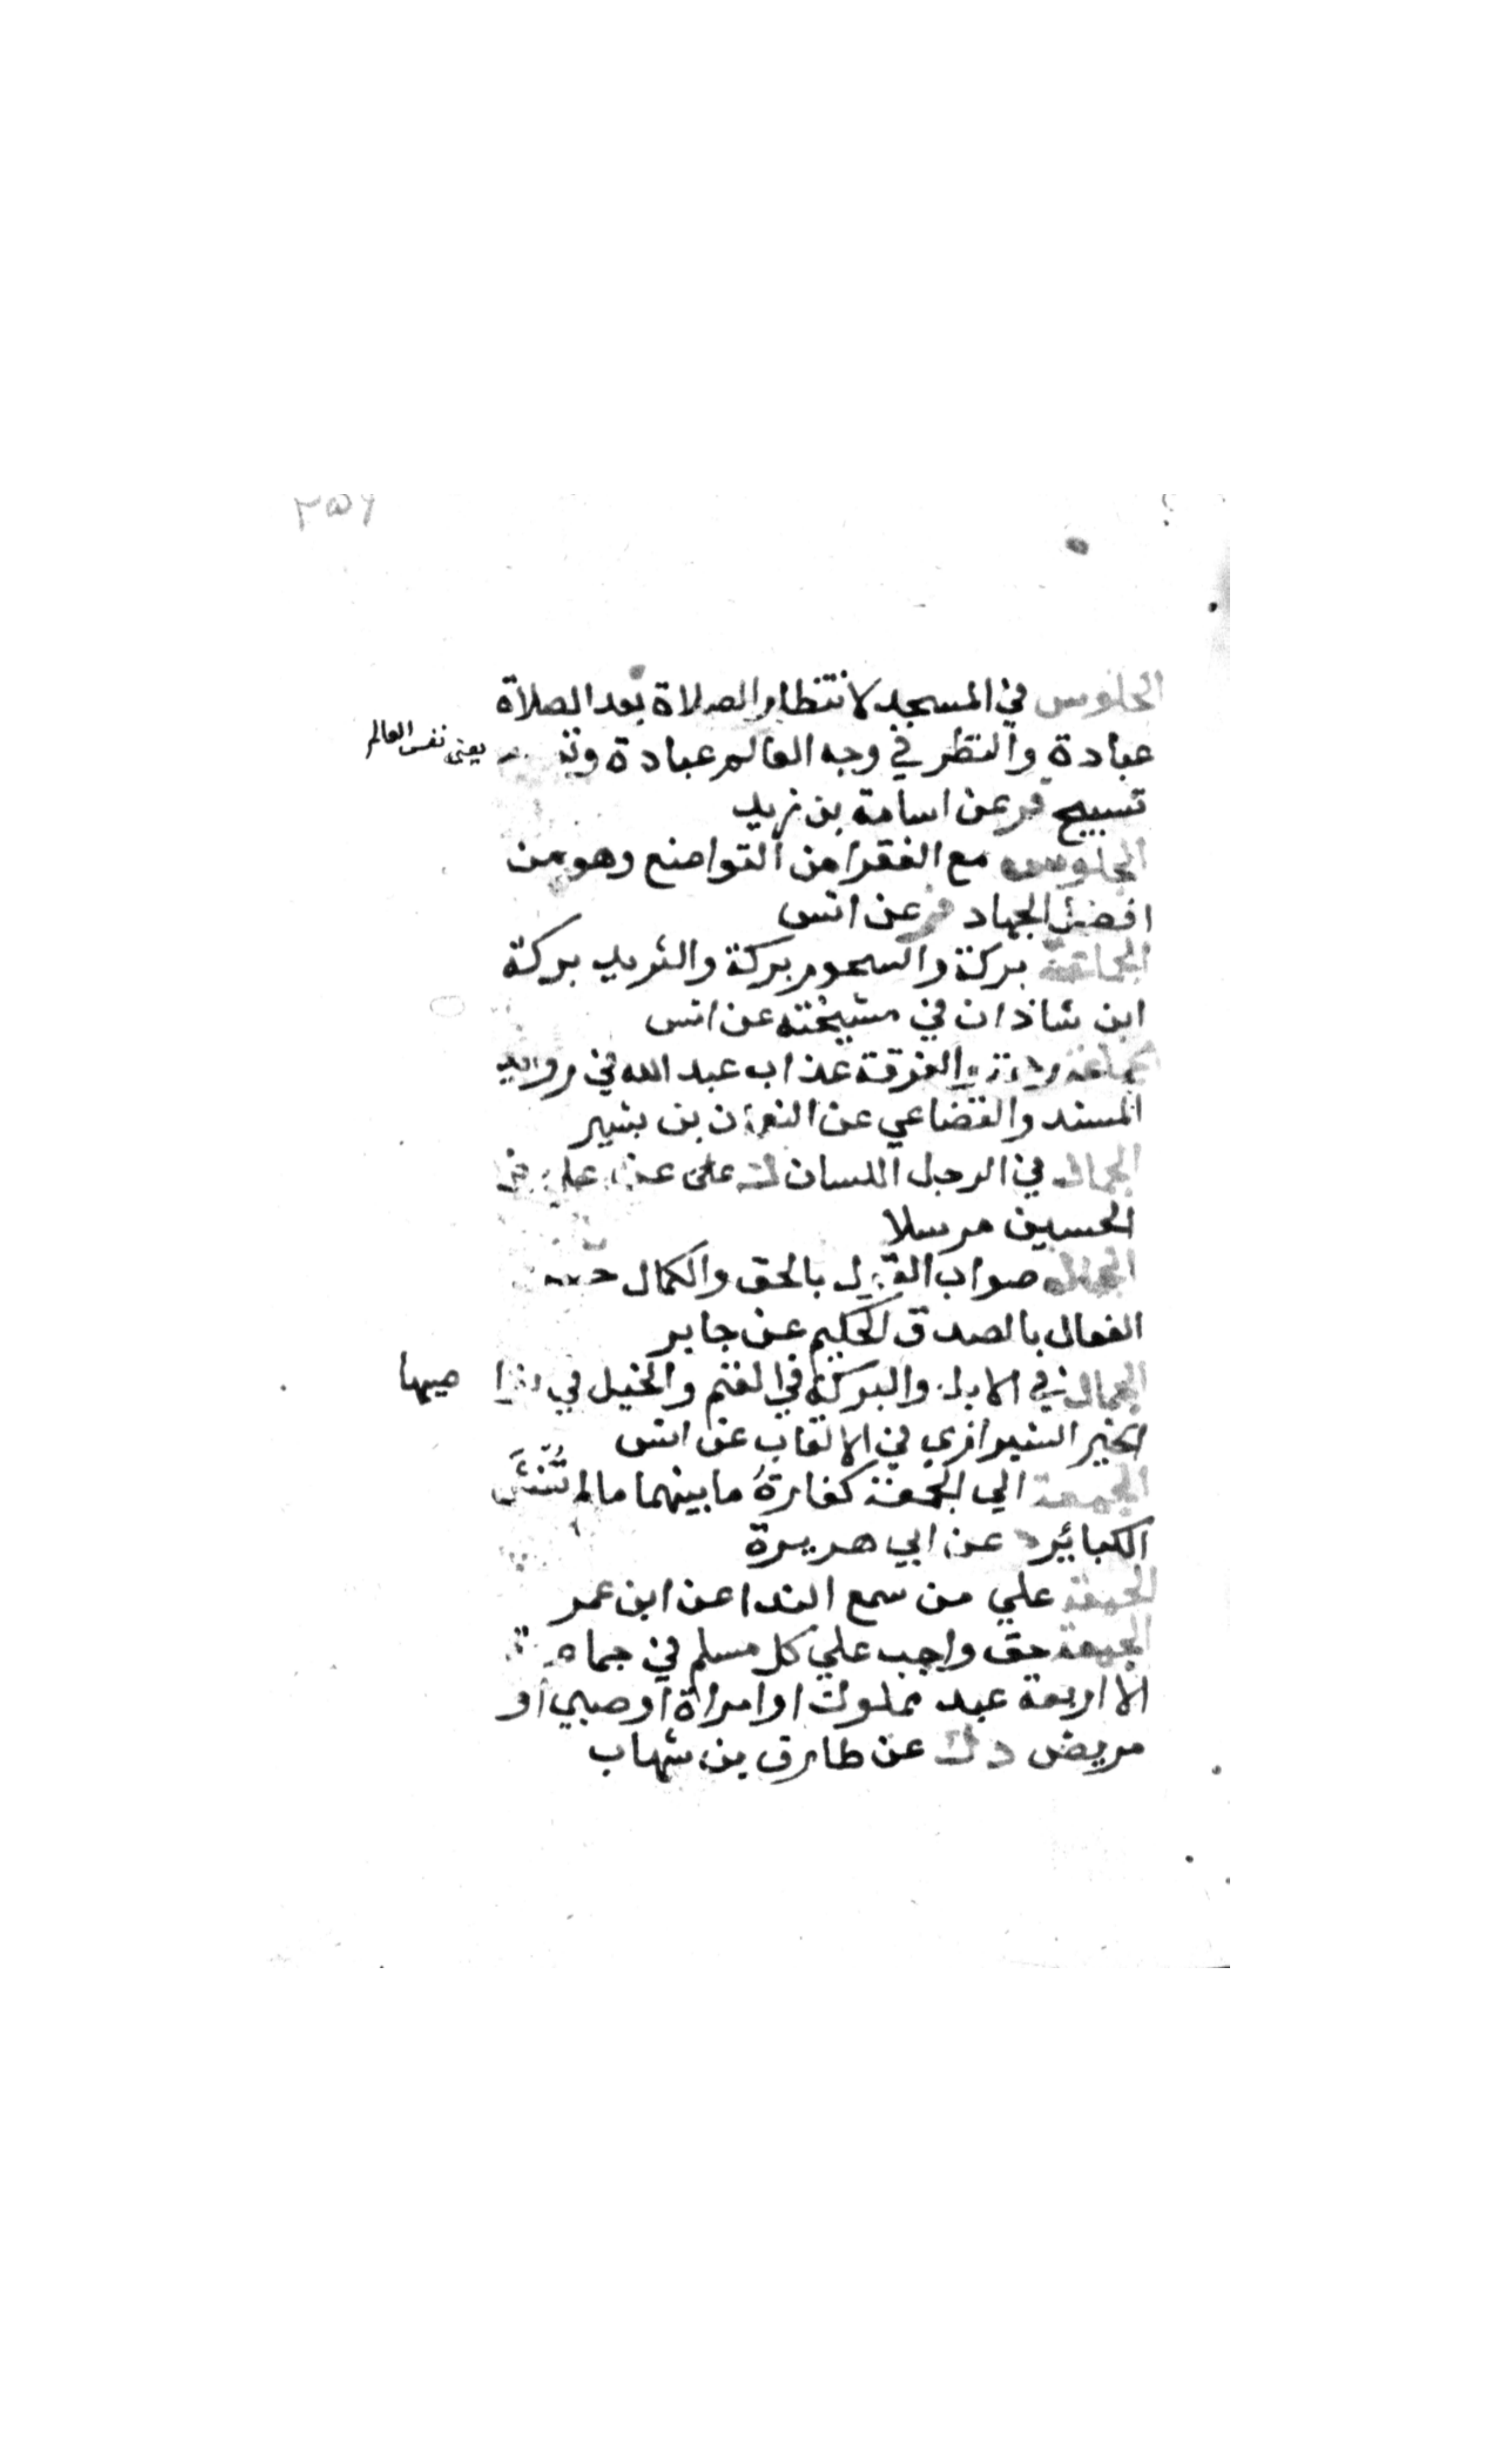 ٣٥٦
الجلوس في المسجد لانتظار الصلاة بعد الصلاة
عبادة والنظر في وجه العالم عبادة
يعني نفس العالم
تسبيح فر عن اسامة بن زيد
الجلوس مع الفقرا من التواضع وهو من
افضل الجهاد فر عن انس
الجماعة بركة والسحور بركة والثريد بركة
ابن شاذان في مشيخته عن انس
والفرقة عذاب عبد الله في زوايد
المسند والقضاعي عن النعمان بن بشير
الجمال في الرجل اللسان ك علي عن علي بن
الحسين مرسلا
الجمال صواب القول بالحق والكمال
الفعال بالصدق الحكيم عن جابر
الجمال في الابل والبركة في الغنم والخيل في نواصيها
الخير الشيرازي في الالقاب عن انس
الجمعة الي الجمعة كفارةُ ما بينهما مالم تُغْشَ
الكبائر ه عن ابي هريرة
الجمعة علي من سمع الندا عن ابن عمر
الجمعة حق واجب علي كل مسلم في جماعة
الا اربعة عبد مملوك او امراة او صبي او
مريض د ك عن طارق بن شهاب